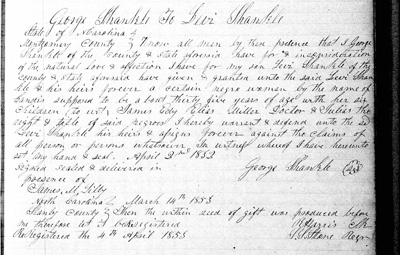 George Shankle To Levi Shankle
State of N Carolina
Montgomery County Know all men by these presents that I George
Shankle of the County & State aforesaid have for & in consideration
of the natural love & affection I have for my son Levi Shankle of the
county & State aforesaid have given & granted unto the said Levi Shan
kle & his heirs forever a certain negro woman by the name of
suppond to be a bout thirty five years of age with her six
Children to wit, James Edy Elias Miller Doctor & Julius the
right & title of said negroes I hereby warrant & defend unto the sd
Levi Shankle his heirs & assigns forever against the claims of
all person or persons whatsoever In witness whereof I have hereunto
set my hand & seal. April 2nd 1852
signed sealed & delivered in George Shankle
presence of
James M. Lilly
North Carolina March 14th 1853
Stanly County Then the within deed of gift was produced before
me therefore let it be registered Harris Clk
Registered the 4th April 1853